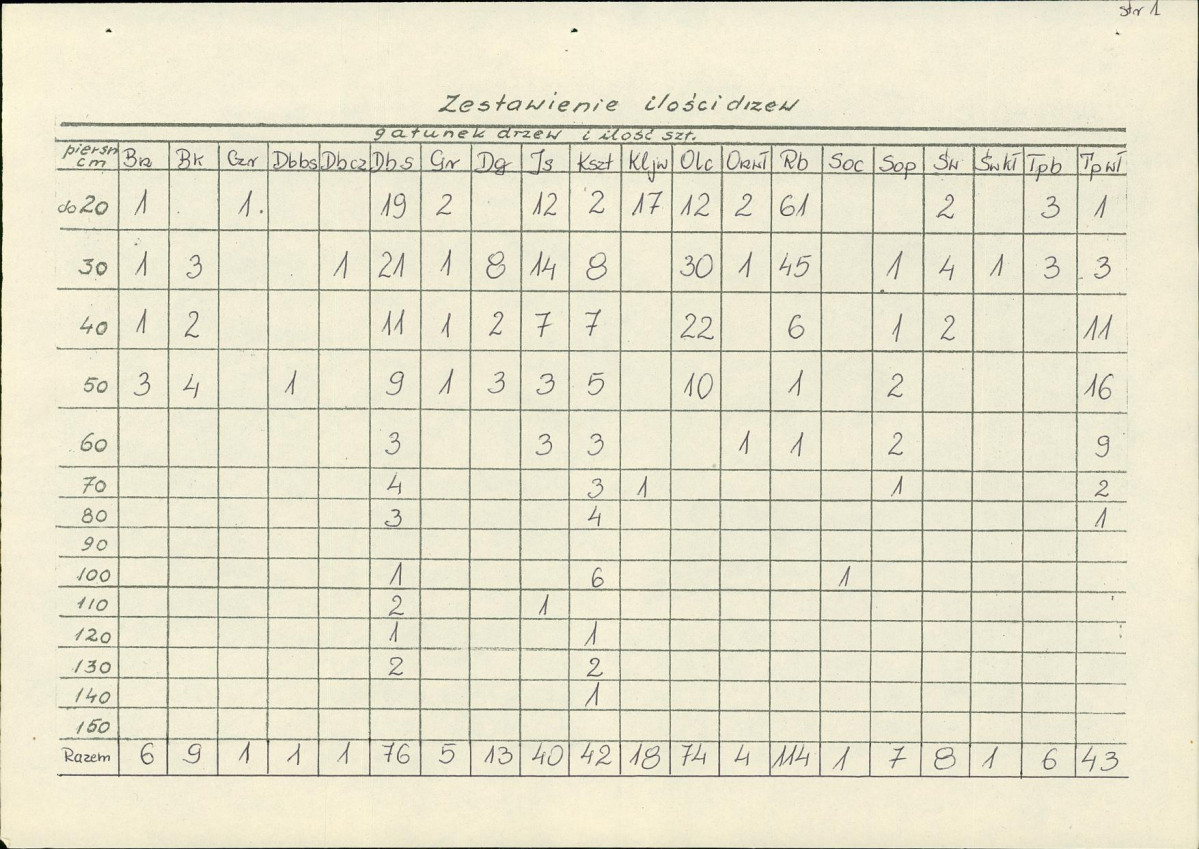 str 1
Zestawienie ilości drzew
gatunek drzew i ilość szt.
piersn cm Brz Bk Czr Dbbs Dbcz Dbs Gr Dg Js Kszt Kljw Olc Orwł Rb Soc Sop Św Świkł Tpb Tpwł
do 20 1 1. 19 2 12 2 17 12 2 61 2 3 1
30 1 3 1 21 1 8 14 8 30 1 45 1 4 1 3 3
40 1 2 11 1 2 7 7 22 6 1 2 11
50 3 4 1 9 1 3 3 5 10 1 2 16
60 3 3 3 1 1 2 9
70 4 3 1 1 2
80 3 4 1
90
100 1 6 1
110 2 1
120 1 1
130 2 2
140 1
150
Razem 6 9 1 1 1 76 5 13 40 42 18 74 4 114 1 7 8 1 6 43